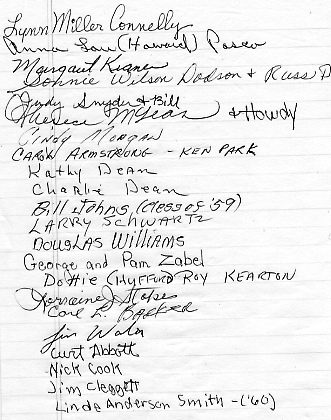 Lynn Miller Connelly
Anna Lou (Howard) Pasco
Margaret
Bonnie Wilson Dodson & Russ D
Judy Snyder & Bill
& Howdy
Cindy Morgan
Carol Armstrong - Ken Park
Kathy Dean
Charlie Dean
Bill Johns (Class of '59)
Larry Schwartz
Douglas Williams
George and Pam Zabel
Dottie (Hyfford) Roy Kearton
Carl L. Barker
Jim
Curt Abbott
Nick Cook
Jim Cleggett
Linda Anderson Smith - ('60)